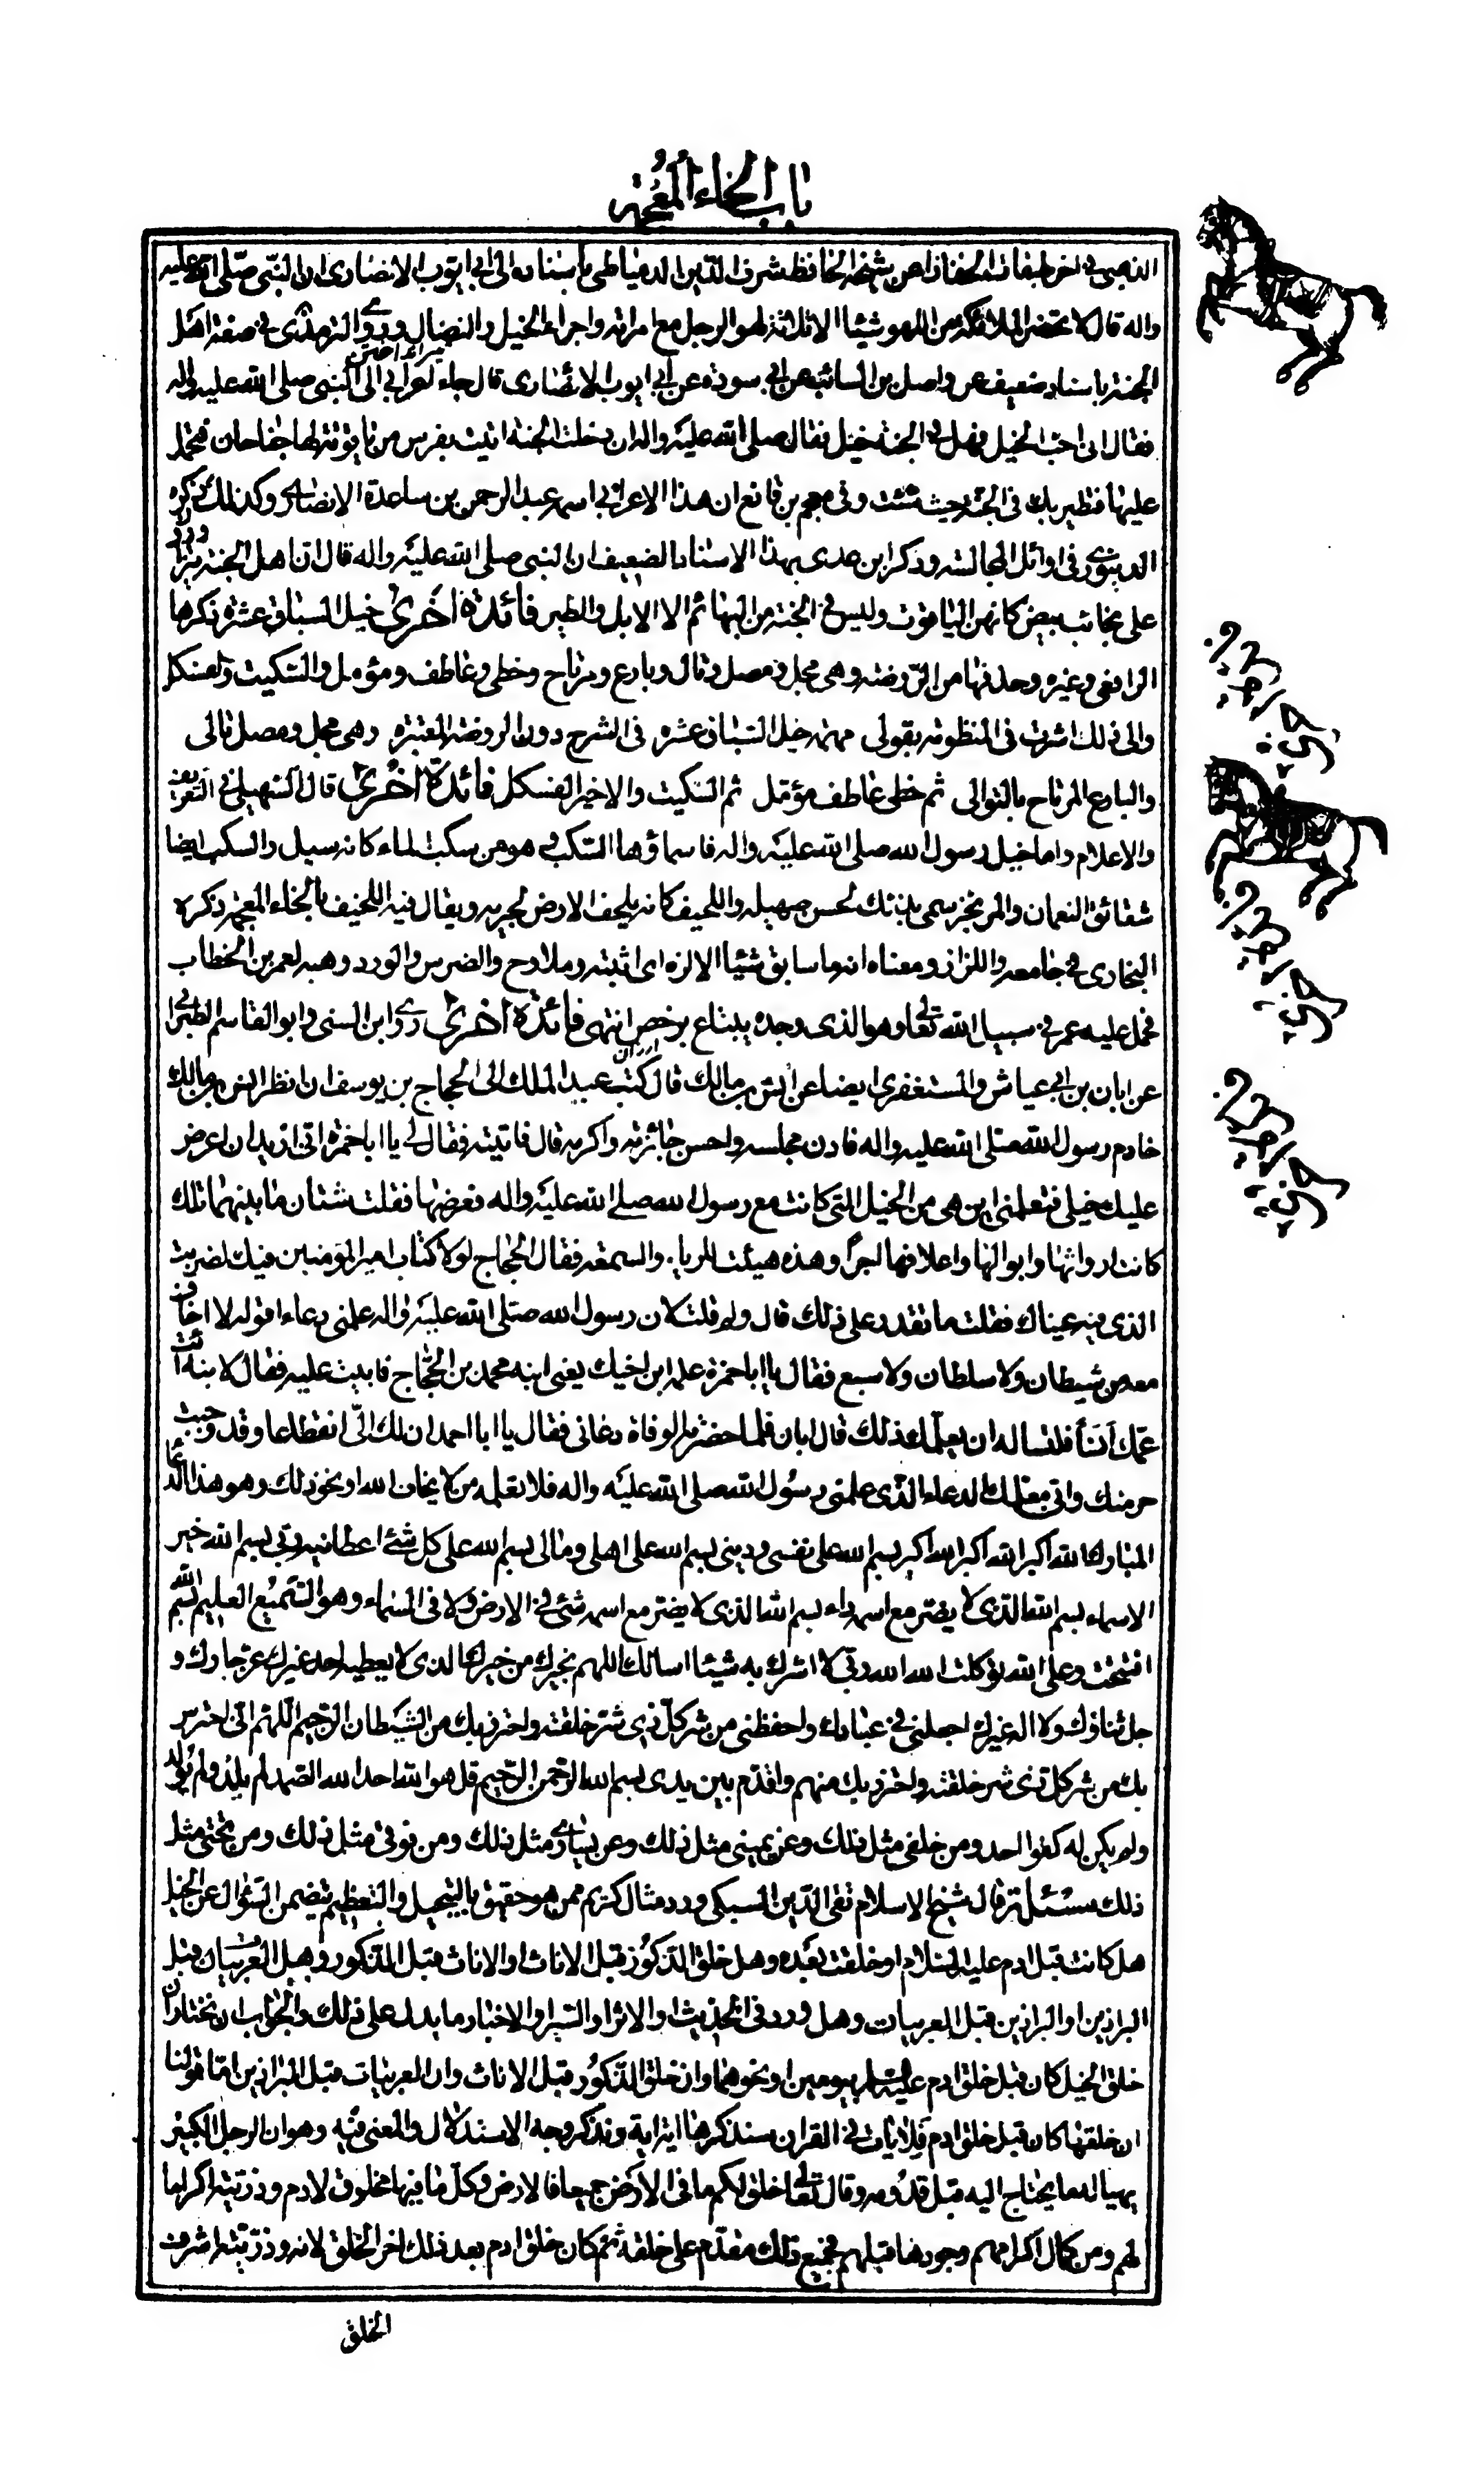 باب الخاء المعجمة
الذهبى فى اخر طبقات الحفاظ عن شيخه الحافظ شرف الدين الدمياطى باسناده الى ابى ايوب الانصارى ان النبى صلى الله عليه
واله قال لا تحضر الملائكة من اللهو شيئا الا ثلاثة لهو الرجل مع امراته واجراء الخيل والنضال وروى الترمذى فى صفة اهل
الجنة باسناد ضعيف عن واصل بن السائب عن ابى سورة عن ابى ايوب الانصارى قال جاء اعرابى الى النبى صلى الله عليه واله
فقال انى احب الخيل فهل فى الجنة خيل فقال صلى الله عليه واله ان دخلت الجنة اتيت بفرس من ياقوتة لها جناحان فتحمل
عليها فتطير بك فى الجنة حيث شئت وفى معجم بن قانع ان هذا الاعرابى اسمه عبد الرحمن بن ساعدة الانصارى وكذلك ذكره
الدينورى فى اوائل المجالسة وذكر ابن عدى بهذا الاسناد الضعيف ان النبى صلى الله عليه واله قال ان اهل الجنة يتزاورون
على نجائب بيض كانهن الياقوت وليس فى الجنة من البهائم الا الابل والطير فائدة اخرى خيل السباق عشرة ذكرها
الرافعى وغيره وحذفها من الروضة وهى مجل ومصل وتال وبارع ومرتاح وخطى وعاطف ومؤمل والسكيت والفسكل
والى ذلك اشرت فى المنظومة بقولى مهمة خيل السباق عشره فى الشرح دون الروضة المعتبره وهى مجل ومصل تالى
والبارع المرتاح بالتوالى ثم خطى عاطف مؤمل ثم السكيت والاخير الفسكل فائدة اخرى قال السهيلى فى التعريف
والاعلام واما خيل رسول الله صلى الله عليه واله فاسماؤها السكب وهو من سكب الماء كانه سيل والسكب ايضا
شقائق النعمان والمرتجز سمى بذلك لحسن صهيله واللحيف كانه يلحف الارض بجريه ويقال فيه اللخيف بالخاء المعجمة ذكره
البخارى فى جامعه واللزاز ومعناه انه ما سابق شيئا الا لزه اى اثبته وملاوح والضرس والورد وهبه لعمر بن الخطاب
فحمل عليه عمر فى سبيل الله تعالى وهو الذى وجده يبتاع برخص انتهى فائدة اخرى روى ابن السنى وابو القاسم الطبرانى
عن ابان بن ابى عياش والمستغفرى ايضا عن انس بن مالك قال كتب عبد الملك الى الحجاج بن يوسف ان انظر انس بن مالك
خادم رسول الله صلى الله عليه واله فادن مجلسه واحسن جائزته واكرمه قال فاتيته فقال لى يا ابا حمزة انى اريد ان اعرض
عليك خيلى فتعلمنى اين هى من الخيل التى كانت مع رسول الله صلى الله عليه واله فعرضها فقلت شتان ما بينهما تلك
كانت ارواثها وابوالها واعلافها اجرا وهذه هيئت للرياء والسمعة فقال الحجاج لولا كتاب امير المؤمنين فيك لضربت
الذى فيه عيناك فقلت ما تقدر على ذلك قال ولم قلت لان رسول الله صلى الله عليه واله علمنى دعاء اقوله لا اخاف
معه من شيطان ولا سلطان ولا سبع فقال يا ابا حمزة علمه ابن اخيك يعنى ابنه محمد بن الحجاج فابيت عليه فقال لابنه ائت
عمك انسا فلتساله ان يعلمك ذلك قال ابان فلما حضرته الوفاة دعانى فقال يا ابا احمد ان لك الى انقطاعا وقد وجبت
حرمتك وانى معلمك الدعاء الذى علمنى رسول الله صلى الله عليه واله فلا تعلمه من لا يخاف الله او نحو ذلك وهو هذا الدعا
المبارك الله اكبر الله اكبر الله اكبر بسم الله على نفسى ودينى بسم الله على اهلى ومالى بسم الله على كل شئ اعطانيه ربى بسم الله خير
الاسماء بسم الله الذى لا يضر مع اسمه داء بسم الله الذى لا يضر مع اسمه شئ فى الارض ولا فى السماء وهو السميع العليم بسم الله
افتتحت وعلى الله توكلت الله الله ربى لا اشرك به شيئا اسالك اللهم بخيرك من خيرك الذى لا يعطيه احد غيرك عز جارك و
جل ثناؤك ولا اله غيرك اجعلنى فى عياذك واحفظنى من شر كل ذى شر خلقته واحترز بك من الشيطان الرجيم اللهم انى احترس
بك من شر كل ذى شر خلقته واحترز بك منهم واقدم بين يدى بسم الله الرحمن الرحيم قل هو الله احد الله الصمد لم يلد ولم يولد
ولم يكن له كفوا احد ومن خلفى مثل ذلك وعن يمينى مثل ذلك وعن يسارى مثل ذلك ومن فوقى مثل ذلك ومن تحتى مثل
ذلك مسئلة قال شيخ الاسلام تقى الدين السبكى ورد مثال كريم ممن هو حقيق بالتبجيل والتعظيم يتضمن السؤال عن الخيل
هل كانت قبل ادم عليه السلام او خلقت بعده وهل خلق الذكور قبل الاناث او الاناث قبل الذكور وهل العربيات قبل
البراذين او البراذين قبل العربيات وهل ورد فى الحديث او الاثر او السير او الاخبار ما يدل على ذلك والجواب ان نختار ان
خلق الخيل كان قبل خلق ادم عليه السلم بيومين او نحوهما وان خلق الذكور قبل الاناث وان العربيات قبل البراذين اما قولنا
ان خلقها كان قبل خلق ادم فلايات فى القران سنذكرها اية اية ونذكر وجه الاستدلال والمعنى فيه وهو ان الرجل الكبير
يهيا له ما يحتاج اليه قبل قدومه وقال تعالى خلق لكم ما فى الارض جميعا فالارض وكل ما فيها مخلوق لادم وذريته اكراما
لهم ومن كمال اكرامهم وجودها قبلهم فجميع ذلك مقدم على خلقه ثم كان خلق ادم بعد ذلك اخر الخلق لانه وذريته اشرف
الخلق